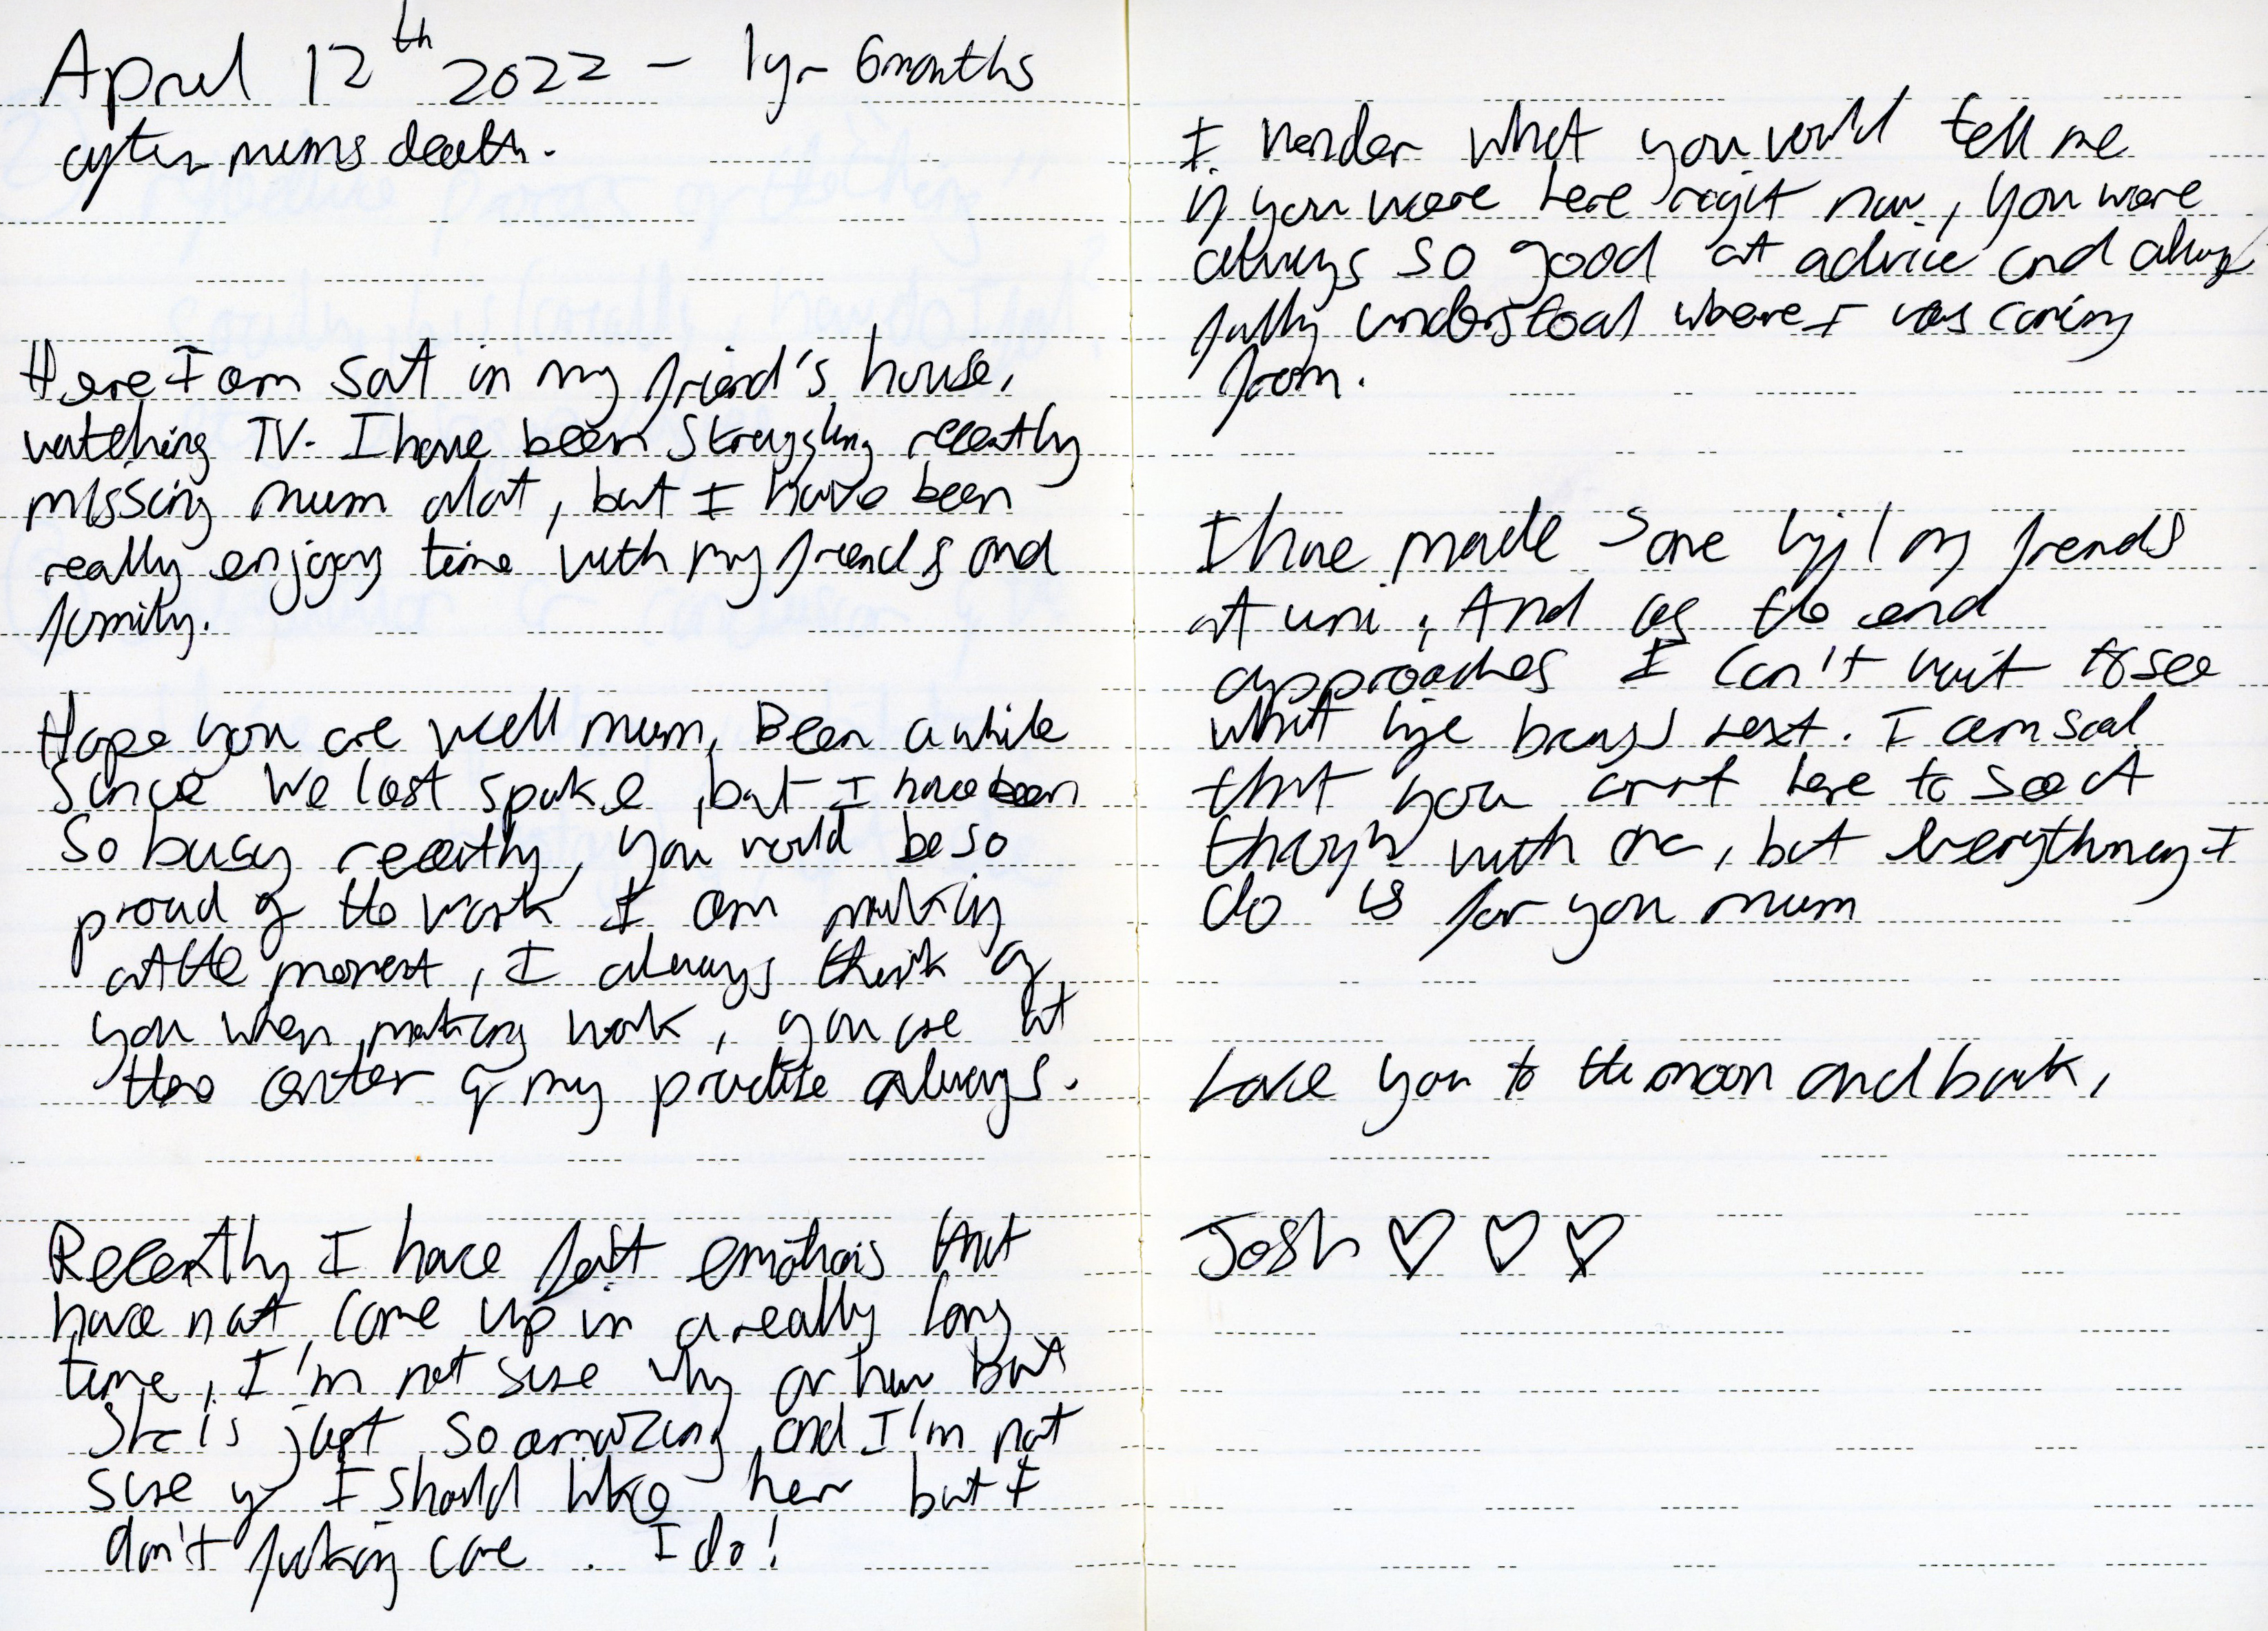 April 12th 2022 - 1yr 6months
after mums death.
Here I am sat in my friend's house,
watching TV. I have been struggling recently
missing mum alot, but I have been
really enjoying time with my friends and
family.
Hope you are well mum, Been a while
since we last spoke, but I have been
so busy recently, you would be so
proud of the work I am making
at the moment, I always think of
you when making work, you are at
the center of my practise always.
Recently I have felt emotions that
have not come up in a really long
time, I'm not sure why or how but
She is just so amazing, and I'm not
sure if I should like her but I
don't fucking care. I do!
I wonder what you would tell me
if you were here right now, you were
always so good at advice and always
fully understood where I was coming
from.
I have made some life long friends
at uni, And as the end
approaches I can't wait to see
what life brings next. I am sad
that you arnt here to see it
through with me, but everything I
do is for you mum
Love you to the moon and back,
Josh ♡ ♡ ♡